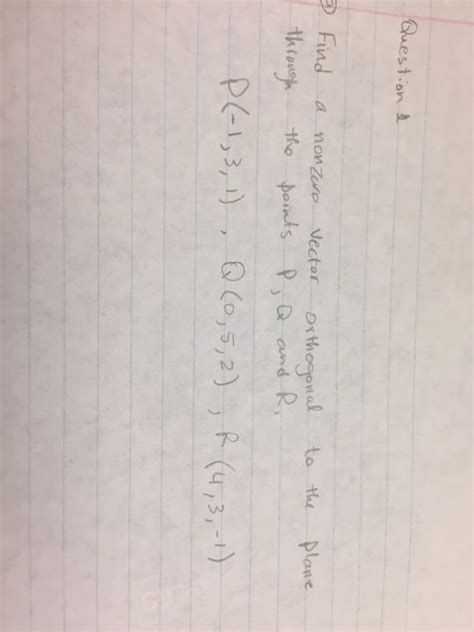 Question 1
a) Find a nonzero vector orthogonal to the plane
through the points P, Q and R,
P(-1,3,1), Q(0,5,2), R(4,3,-1)